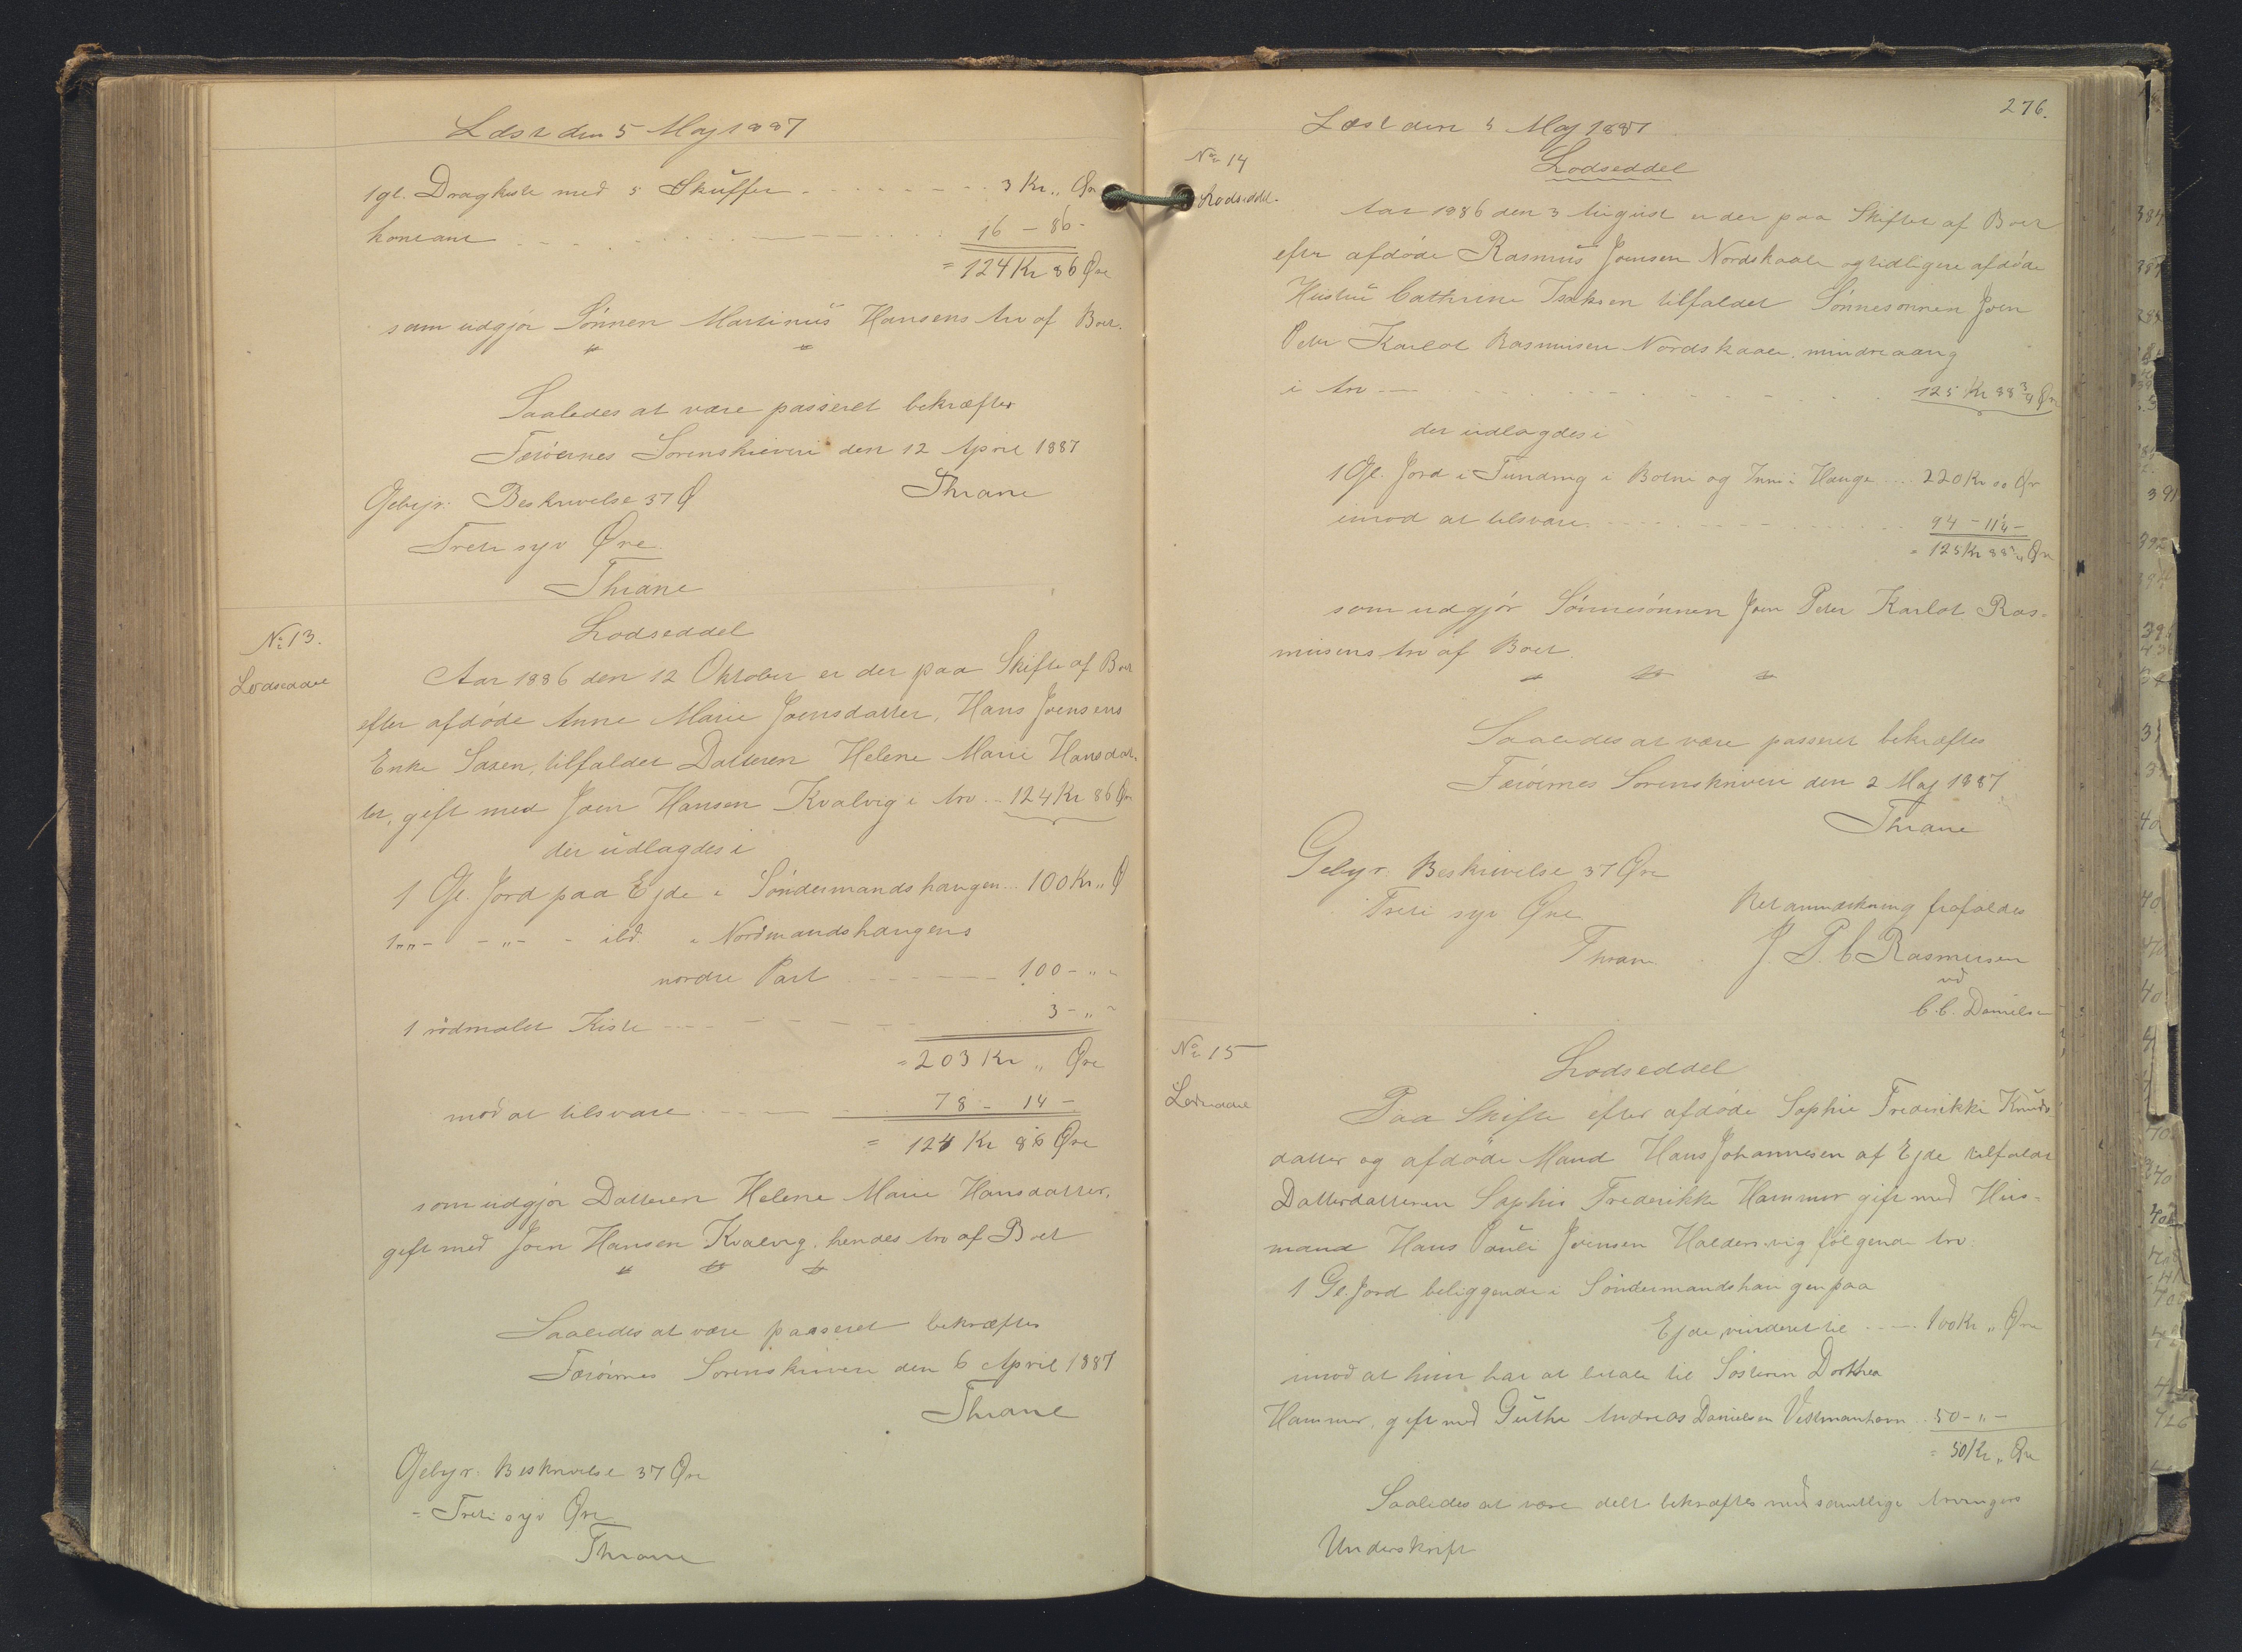 Læst den 5 Maj 1887
1 gl. Dragkiste med 5 Skuffer - - - - - - - 3 Kr. " Øre
kontant - - - - - - - 16 - 86 -
= 124 Kr 86 Øre
som udgjør Sønnen Martinus Hansens Arv af Boet.
Saaledes at være passeret bekræfter
Færøernes Sorenskriveri den 12 April 1887
Thrane
Gebyr. Beskrivelse 37 Ø
Treti syv Øre
Thrane
No 13.
Lodseddel
Lodseddel
Aar 1886 den 12 Oktober er der paa Skifte af Boet
efter afdøde Anne Marie Joensdatter, Hans Joensens
Enke Saxen, tilfaldet Datteren Helene Marie Hansdat-
ter, gift med Joen Hansen Kvalvig i Arv - - 124 Kr 86 Øre
der udlagdes i
1 Gl. Jord paa Ejde i Søndermandshaugen - - 100 Kr. " Ø
1 " " - - " - - ibd i Nordmandshaugens
nordre Part - - - - - - 100 - " -
1 rødmalet Kiste - - - - - - 3 - " -
= 203 Kr " Øre
mod at tilsvare - - - - 78 - 14 -
= 124 Kr 86 Øre
som udgjør Datteren Helene Marie Hansdatter,
gift med Joen Hansen Kvalvig, hendes Arv af Boet
Saaledes at være passeret bekræfter
Færøernes Sorenskriveri den 6 April 1887
Thrane
Gebyr. Beskrivelse 37 Øre
- Treti syv Øre
Thrane
276.
Læst den 5 Maj 1887
No 14
Lodseddel.
Lodseddel
Aar 1886 den 3 August er der paa Skiftet af Boet
efter afdøde Rasmus Joensen Nordskaale og tidligere afdøde
Hustru Cathrine Isaksen tilfaldet Sønnesønnen Joen
Peter Karlot Rasmusen Nordskaale, mindreaarig
i Arv - - - - - - - - 125 Kr 88 3/4 Øre
der udlagdes i
1 Gl. Jord i Funding i Botni og Inni i Hauge - - - 220 Kr 00 Ør
imod at tilsvare - - - - - - - 94 - 11 1/4 -
= 125 Kr 88 3/4 Øre
som udgjør Sønnesønnen Joen Peter Karlot Ras-
musens Arv af Boet.
Saaledes at være passeret bekræftes
Færøernes Sorenskriveri den 2 Maj 1887
Thrane
Gebyr. Beskrivelse 37 Øre
Treti syv Øre
Thrane
Retanmærkning frafaldes
J. P. C Rasmusen
ved
C. C. Danielsen
No 15
Lodseddel
Lodseddel
Paa Skifte efter afdøde Sophie Frederikke Knuds
datter og afdøde Mand Hans Johannesen af Ejde tilfaldt
Datterdatteren Sophie Frederikke Hammer gift med Hus-
mand Hans Pauli Joensen Haldersvig følgende Arv
1 Gl. Jord beliggende i Søndermandshaugen paa
Ejde, vurderet til - - - - 100 Kr " Øre
imod at hun har at betale til Søsteren Dorthea
Hammer, gift med Guthe Andreas Danielsen Vestmanhavn 50 - " -
= 50 Kr " Øre
Saaledes at være delt bekræftes med samtlige Arvingers
Underskrift